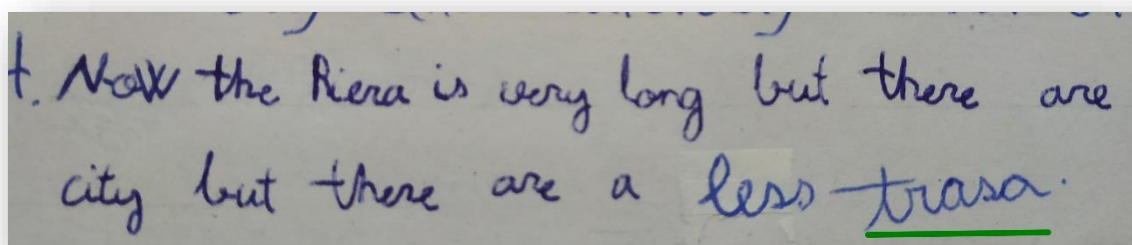 t. Now the Riera is very long but there are
city but there are a less trasa.